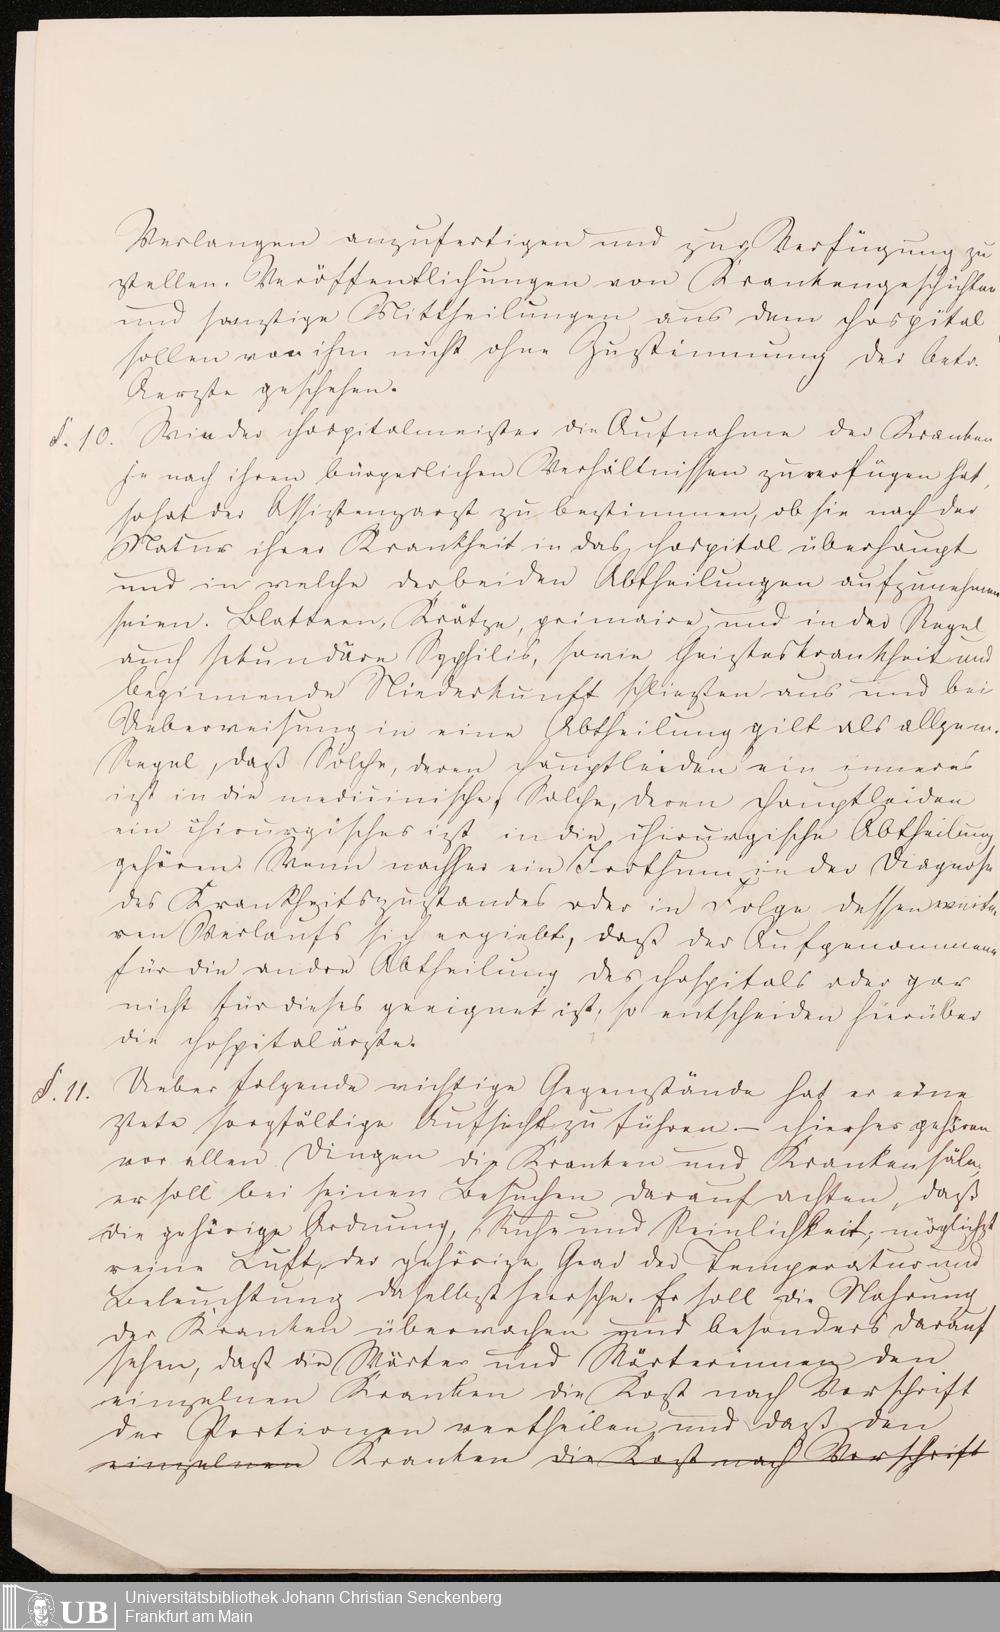 Verlangen anzufertigen und zur Verfügung zu
stellen. Veröffentlichungen von Krankengeschichten
und sonstige Mittheilungen aus dem Hospital
sollen von ihm nicht ohne Zustimmung der betr.
Aerzte geschehen.
§. 10. Wie der Hospitalmeister die Aufnahme der Kranken
je nach ihren bürgerlichen Verhältnissen zu verfügen hat,
so hat der Assistenzarzt zu bestimmen, ob sie nach der
Natur ihrer Krankheit in das Hospital überhaupt
und in welche der beiden Abtheilungen aufzunehmen
seien. Blattern, Krätze, primaire und in der Regel
auch sekundäre Syphilis, sowie Geisteskrankheit und
beginnende Niederkunft schliesten aus und bei
Ueberweisung in eine Abtheilung gilt als allgem.
Regel, daß Solche, deren Hauptleiden ein inneres
ist in die medicinische, Solche, deren Hauptleiden
ein chirurgisches ist in die chirurgische Abtheilung
gehören. Wenn nachher ein Irrthum in der Diagnose
des Krankheitszustandes oder in Folge dessen weite-
ren Verlaufs sich ergiebt, daß der Aufgenommene
für die andre Abtheilung des Hospitals oder gar
nicht für dieses geeignet ist, so entscheiden hierüber
die Hospitalärzte.
§. 11. Ueber folgende wichtige Gegenstände hat er eine
stete sorgfältige Aufsicht zu führen. — Hierher gehören
vor allen Dingen die Kranken und Krankensäle,
er soll bei seinen Besuchen darauf achten, daß
die gehörige Ordnung, Ruhe und Reinlichkeit, möglichst
reine Luft, der gehörige Grad der Temperatur und
Beleuchtung daselbst herrsche. Er soll die Nahrung
der Kranken überwachen und besonders darauf
sehen, daß die Wärter und Wärterinnen den
einzelnen Kranken die Kost nach Vorschrift
der Portionen vertheilen und daß den
einzelnen Kranken die Kost nach Vorschrift
UB
Universitätsbibliothek Johann Christian Senckenberg
Frankfurt am Main